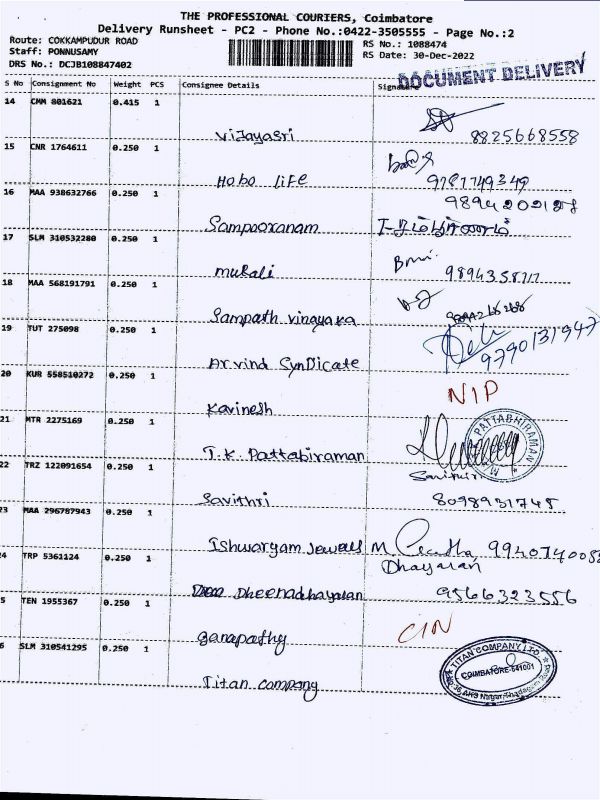 THE PROFESSIONAL COURIERS, Coimbatore
Delivery Runsheet - PC2 - Phone No.:0422-3505555 - Page No.:2
Route: COKKAMPUDUR ROAD
Staff: PONNUSAMY
DRS No.: DCJB108847402
RS No.: 1088474
RS Date: 30-Dec-2022
DOCUMENT DELIVERY
S No Consignment No Weight PCS Consignee Details Signature
14 CMM 801621 0.415 1
Vijayasri 8825668558
15 CNR 1764611 0.250 1
Hobo life 9787749349
16 MAA 938632766 0.250 1
Sampooranam
17 SLM 310532280 0.250 1
murali
18 MAA 568191791 0.250 1
Sampath vinayaka
19 TUT 275098 0.250 1
Arvind Syndicate 9790131947
20 KUR 558510272 0.250 1
Kavinesh NIP
21 MTR 2275169 0.250 1
T.K. Pattabiraman
PATTABHIRAMAN
22 TRZ 122091654 0.250 1
Savithri 8098931745
23 MAA 296787943 0.250 1
Ishwaryam Jewells M.
24 TRP 5361124 0.250 1
Dheenadhayalan Dhayalan 9566323556
5 TEN 1955367 0.250 1
Ganapathy CIN
6 SLM 310541295 0.250 1
Titan company
TITAN COMPANY LTD
COIMBATORE-641001